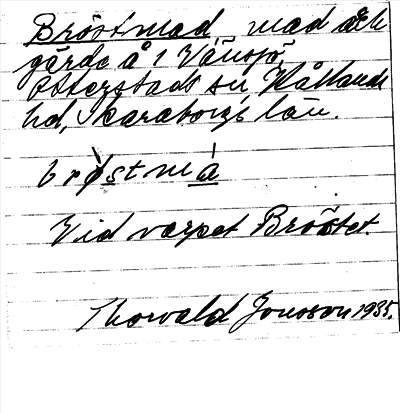 Bröstmad, mad åt
gärde å 1 Vänsjö,
Otterstads sn, Kållands
hd, Skaraborgs län.
brøstma
Vid varpet Bröstet.
Thorvald Jonsson 1935.